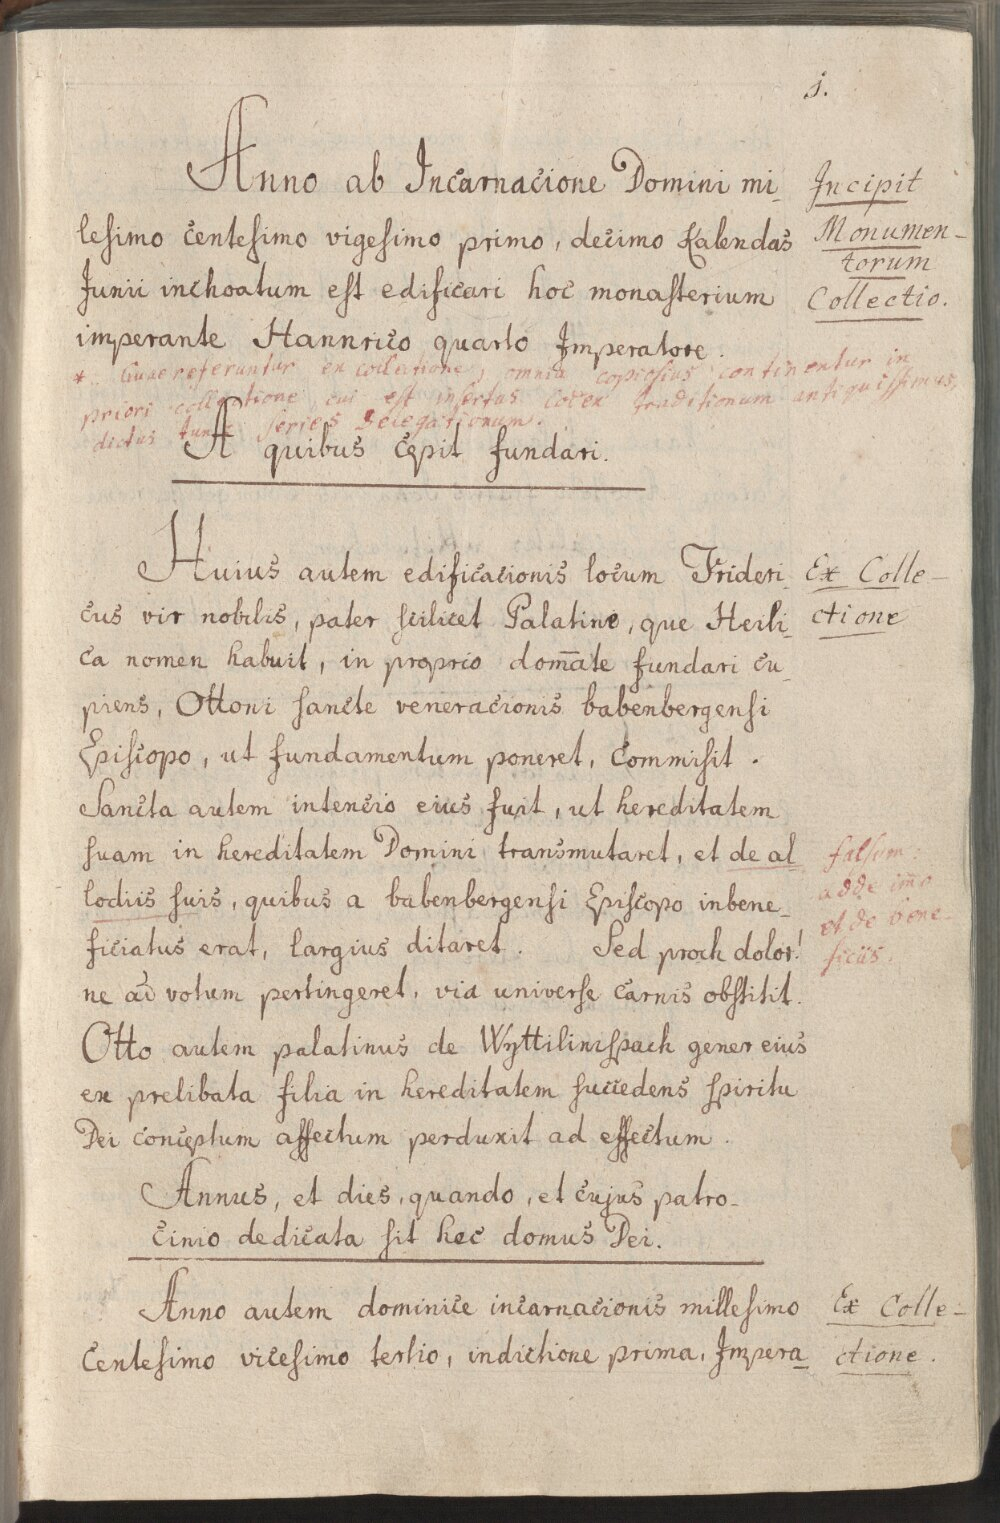 1.
Anno ab Incarnacione Domini mi-
lesimo centesimo vigesimo primo, decimo Kalendas
Junii inchoatum est edificari hoc monasterium
imperante Hannrico quarto Imperatore.
Incipit
Monumen-
torum
Collectio.
* Quae referuntur ex collectione, omnia copiosius continentur in
priori collectione, cui est insertus Codex traditionum antiquissimus,
dictus tunc series Delegationum.
A quibus cępit fundari.
Huius autem edificacionis locum Frideri-
cus vir nobilis, pater scilicet Palatine, que Heili-
ca nomen habuit, in proprio dom̄ate fundari cu-
piens, Ottoni sancte veneracionis babenbergensi
Episcopo, ut fundamentum poneret, commisit.
Sancta autem intencio eius fuit, ut hereditatem
suam in hereditatem Domini transmutaret, et de al-
lodiis suis, quibus a babenbergensi Episcopo inbene-
ficiatus erat, largius ditaret. Sed proch dolor!
ne ad votum pertingeret, via universe carnis obstitit.
Otto autem palatinus de Wyttilinispach gener eius
ex prelibata filia in hereditatem succedens spiritu
Dei concęptum affectum perduxit ad effectum.
Ex Colle-
ctione
falsum:
adde im̄o
et de bene-
ficiis.
Annus, et dies, quando, et cujus patro-
cinio dedicata sit hec domus Dei.
Anno autem dominice incarnacionis millesimo
centesimo vicesimo tertio, indictione prima, Impera-
Ex Colle-
ctione.